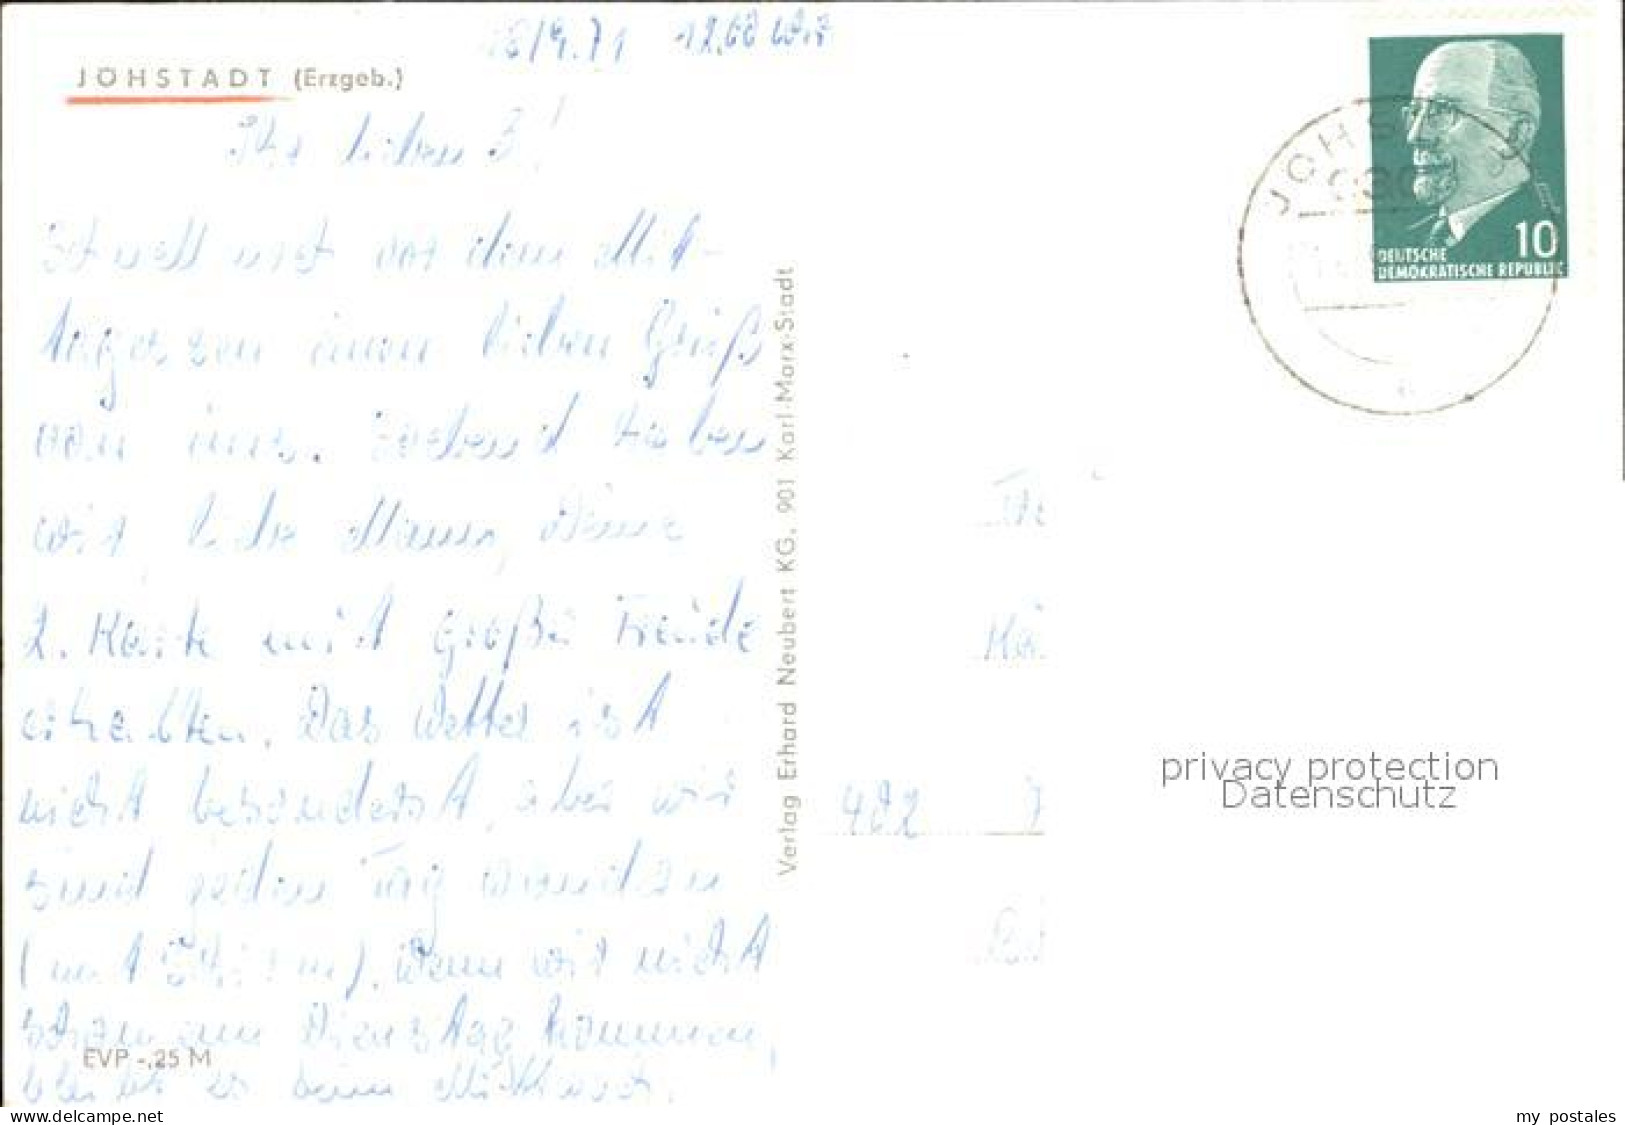 16/4.71 12.00 Uhr
JÖHSTADT (Erzgeb.)
Ihr lieben 3!
Schnell noch vor dem Mit-
tagessen einen lieben Gruß
von uns. Soeben haben
wir, liebe Mama, Deine
2. Karte mit großer Freude
erhalten. Das Wetter ist
nicht besonders, aber wir
sind jeden Tag wandern
(mit Schirm). Wenn wir nicht
schon am Dienstag kommen,
bleibt es beim Mittwoch.
EVP -,25 M
Verlag Erhard Neubert KG, 901 Karl-Marx-Stadt
JÖHST
10
DEUTSCHE
DEMOKRATISCHE REPUBLIK
402
privacy protection
Datenschutz
www.delcampe.net
my_postales